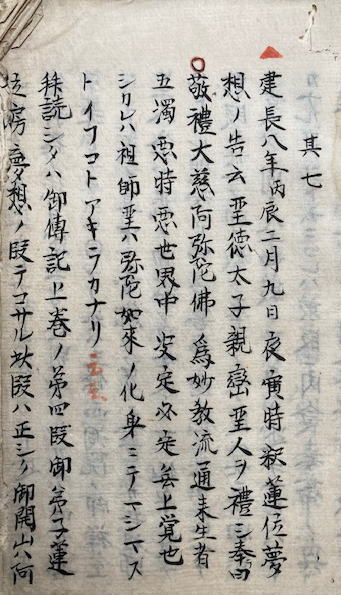 其七
建長八年丙辰二月九日夜寅時釈蓮位夢
想ノ告云聖徳太子親鸞聖人ヲ禮シ奉曰
敬禮大慈阿弥陀佛 為妙教流通来生者
五濁悪時悪世界中 决定必定无上覚也
シカレハ祖師聖ハ弥陀如來ノ化身ニテマシマス
トイフコトアキラカナリ云云
読シタハ御傳記上巻ノ第四段御弟子蓮
位房夢想ノ段テコサル此段ハ正シク御開山ハ阿